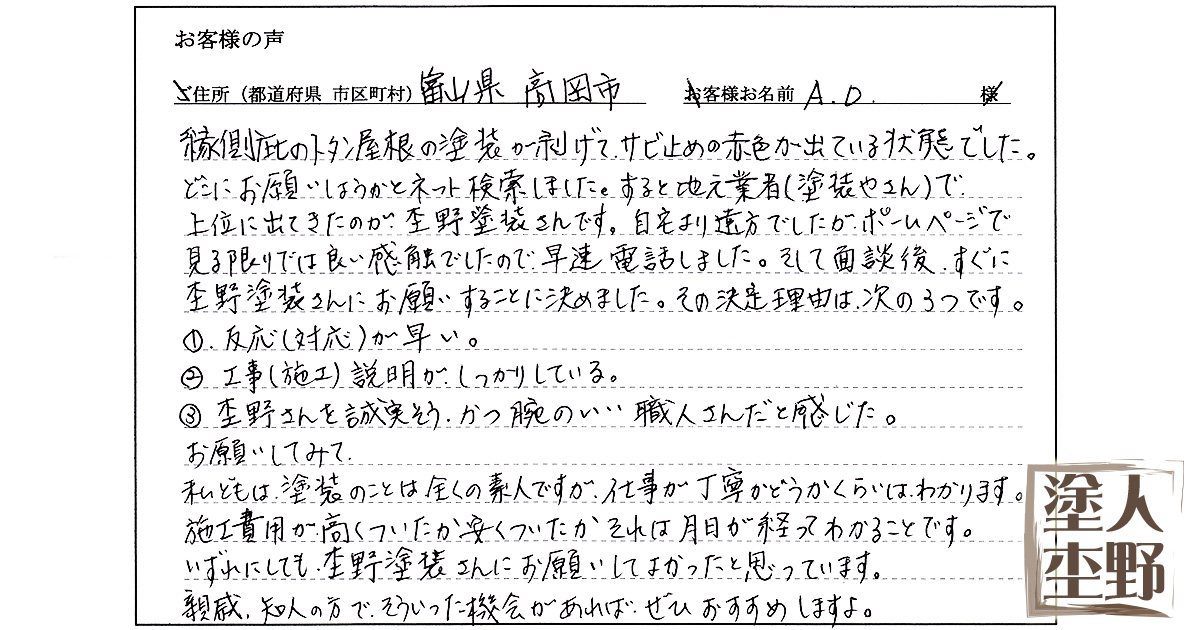 お客様の声
ご住所（都道府県 市区町村）富山県 高岡市 お客様お名前 A.O. 様
縁側庇のトタン屋根の塗装が剥げて、サビ止めの赤色が出ている状態でした。
どこにお願いしようかとネット検索しました。すると地元業者(塗装やさん)で、
上位に出てきたのが、杢野塗装さんです。自宅より遠方でしたが、ホームページで
見る限りでは良い感触でしたので、早速電話しました。そして面談後、すぐに
杢野塗装さんにお願いすることに決めました。その決定理由は、次の3つです。
①. 反応(対応)が早い。
② 工事(施工)説明が、しっかりしている。
③ 杢野さんを誠実そう、かつ腕のいい職人さんだと感じた。
お願いしてみて、
私どもは、塗装のことは全くの素人ですが、仕事が丁寧かどうかくらいは、わかります。
施工費用が、高くついたか安くついたか それは月日が経ってわかることです。
いずれにしても、杢野塗装さんにお願いしてよかったと思っています。
親戚、知人の方で、そういった機会があれば、ぜひおすすめしますよ。
塗人
杢野